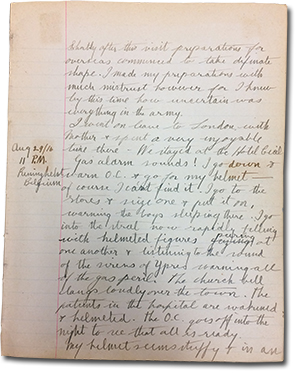 Shortly after this visit preparations for
overseas commenced to take definate
shape. I made my preparations with
much mistrust however for I knew
by this time how uncertain was
everything in the army.
I went on leave to London with
Mother & spent a very enjoyable
time there - We stayed at the Hotel Cecil.
Aug 29/16
11 P.M.
Reninghelst
Belgium
Gas alarm sounds! I go down &
warn O.C. & go for my helmet -
of course I cant find it! I go to the
stores & seize one & put it on,
warning the boys sleeping there. I go
into the street now rapidly filling
with helmeted figures peering at
one another & listening to the sound
of the sirens of Ypres warning all
of the gas peril. The church bell
clangs loudly over the town. The
patients in the hospital are wakened
& helmeted. The O.C. goes off into the
night to see that all is ready.
My helmet seems stuffy & in an